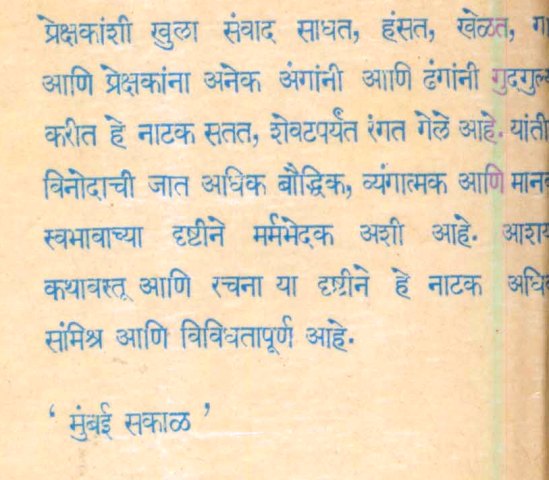 प्रेक्षकांशी खुला संवाद साधत, हंसत, खेळत,
आणि प्रेक्षकांना अनेक अंगांनी आणि ढंगांनी
करीत हे नाटक सतत, शेवटपर्यंत रंगत गेले आहे.
विनोदाची जात अधिक बौद्धिक, व्यंगात्मक आणि
स्वभावाच्या दृष्टीने मर्मभेदक अशी आहे.
कथावस्तू आणि रचना या दृष्टीने हे नाटक
संमिश्र आणि विविधतापूर्ण आहे.
' मुंबई सकाळ '